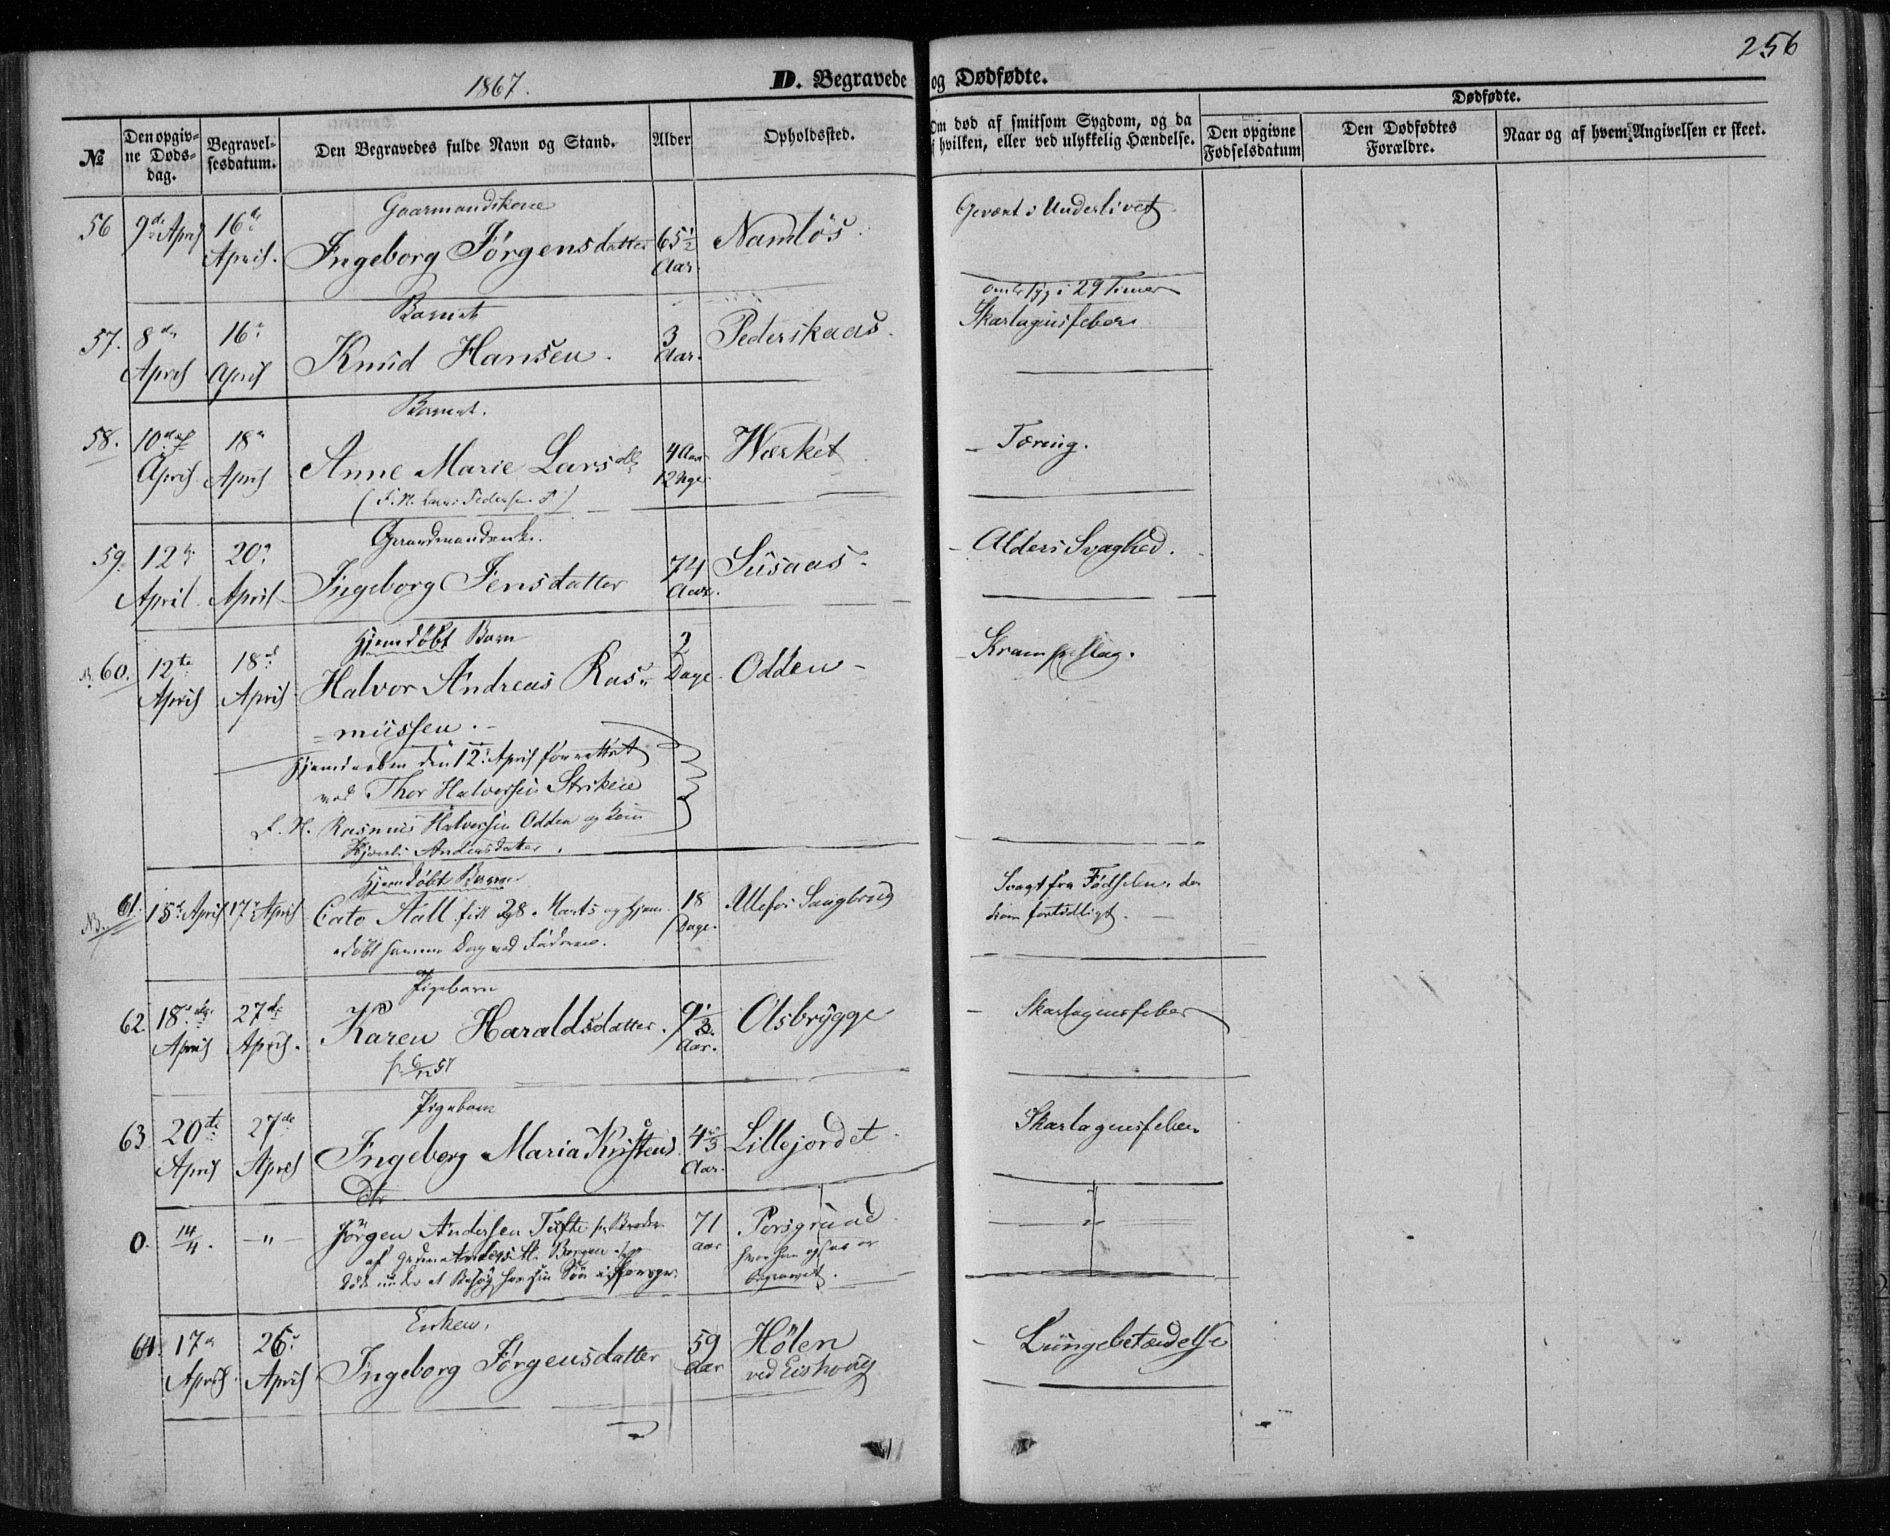 256
1867.
D. Begravede og Dødfødte.
№
Den opgivne Dødsdag.
Begravelsesdatum.
Den Begravedes fulde Navn og Stand.
Alder
Opholdssted.
Om død af smitsom Sygdom, og da
i hvilken, eller ved ulykkelig Hændelse.
Dødfødte.
Den opgivne Fødselsdatum
Den Dødfødtes Forældre.
Naar og af hvem Angivelsen er skeet.
Gaarmandskone
56 9de April 16de April. Ingeborg Jørgensdatter 65½ Aar. Namløs. Gevæxt i Underlivet.
Barnet 29 Timer
57. 8de April 16de April Knud Hansen. 3 Aar. Pederskaas. Skarlagensfeber
Barnet.
58. 10de April 18de April Anne Marie Larsdtr 4 Aar 12 Uger Værket - Tæring.
(F. N. Lars Pedersen)
59. 12te April. 20de April Ingeborg Jensdatter 74 Aar. Susaas. - Alders Svaghed.
Hjemdøbt Barn
N. 60. 12te April 18de April Halvor Andreas Ras- 2 Dage. Odden - - Krampeslag.
= mussen.
Hjemdaaben den 12te April forrettet
ved Thor Halvorsen Striken
F. N. Rasmus Halvorsen Odden og Kone
Andersdatter.
Hjemdøbt Barn
NB. 61. 15de April 17de April Cato Aall født 28. Marts og hjem- 18 Dage. Ullefos Svagt fra Fødselen, da
døbt samme Dag ved Faderen. kom fortidligt.
Pigebarn
62. 18de April 27de April. Karen Haraldsdatter. 9½ Aar. Olsbrygge - Skarlagensfeber
Pigebarn
63. 20de April 27de April Ingeborg Maria Kristens Aar. Lillejordet. Skarlagensfeber
Dtr
0. 14/4. - " - Jørgen Andersen Tufte 71 aar Porsgrund "
af Borgen hvor han ogsaa er
Døde under et Besøg hos sin Søn i begravet.
Enken.
64. 17de April. 26de April Ingeborg Jørgensdatter 59 Aar Hølen - Lungebetændelse
ved